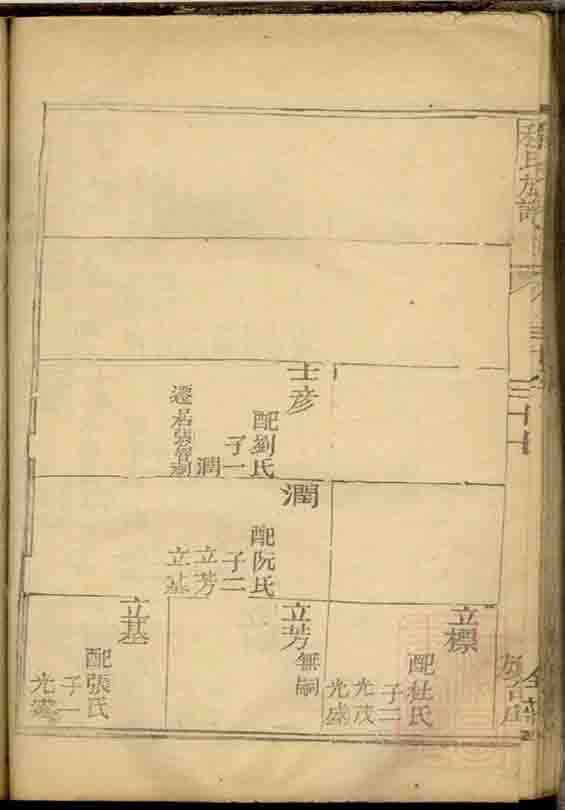 氏族譜
士彥
配劉氏
子一
潤
潤
配阮氏
子二
立芳
立基
立標
配杜氏
子二
光茂
光盛
立芳
無嗣
立基
配張氏
子一